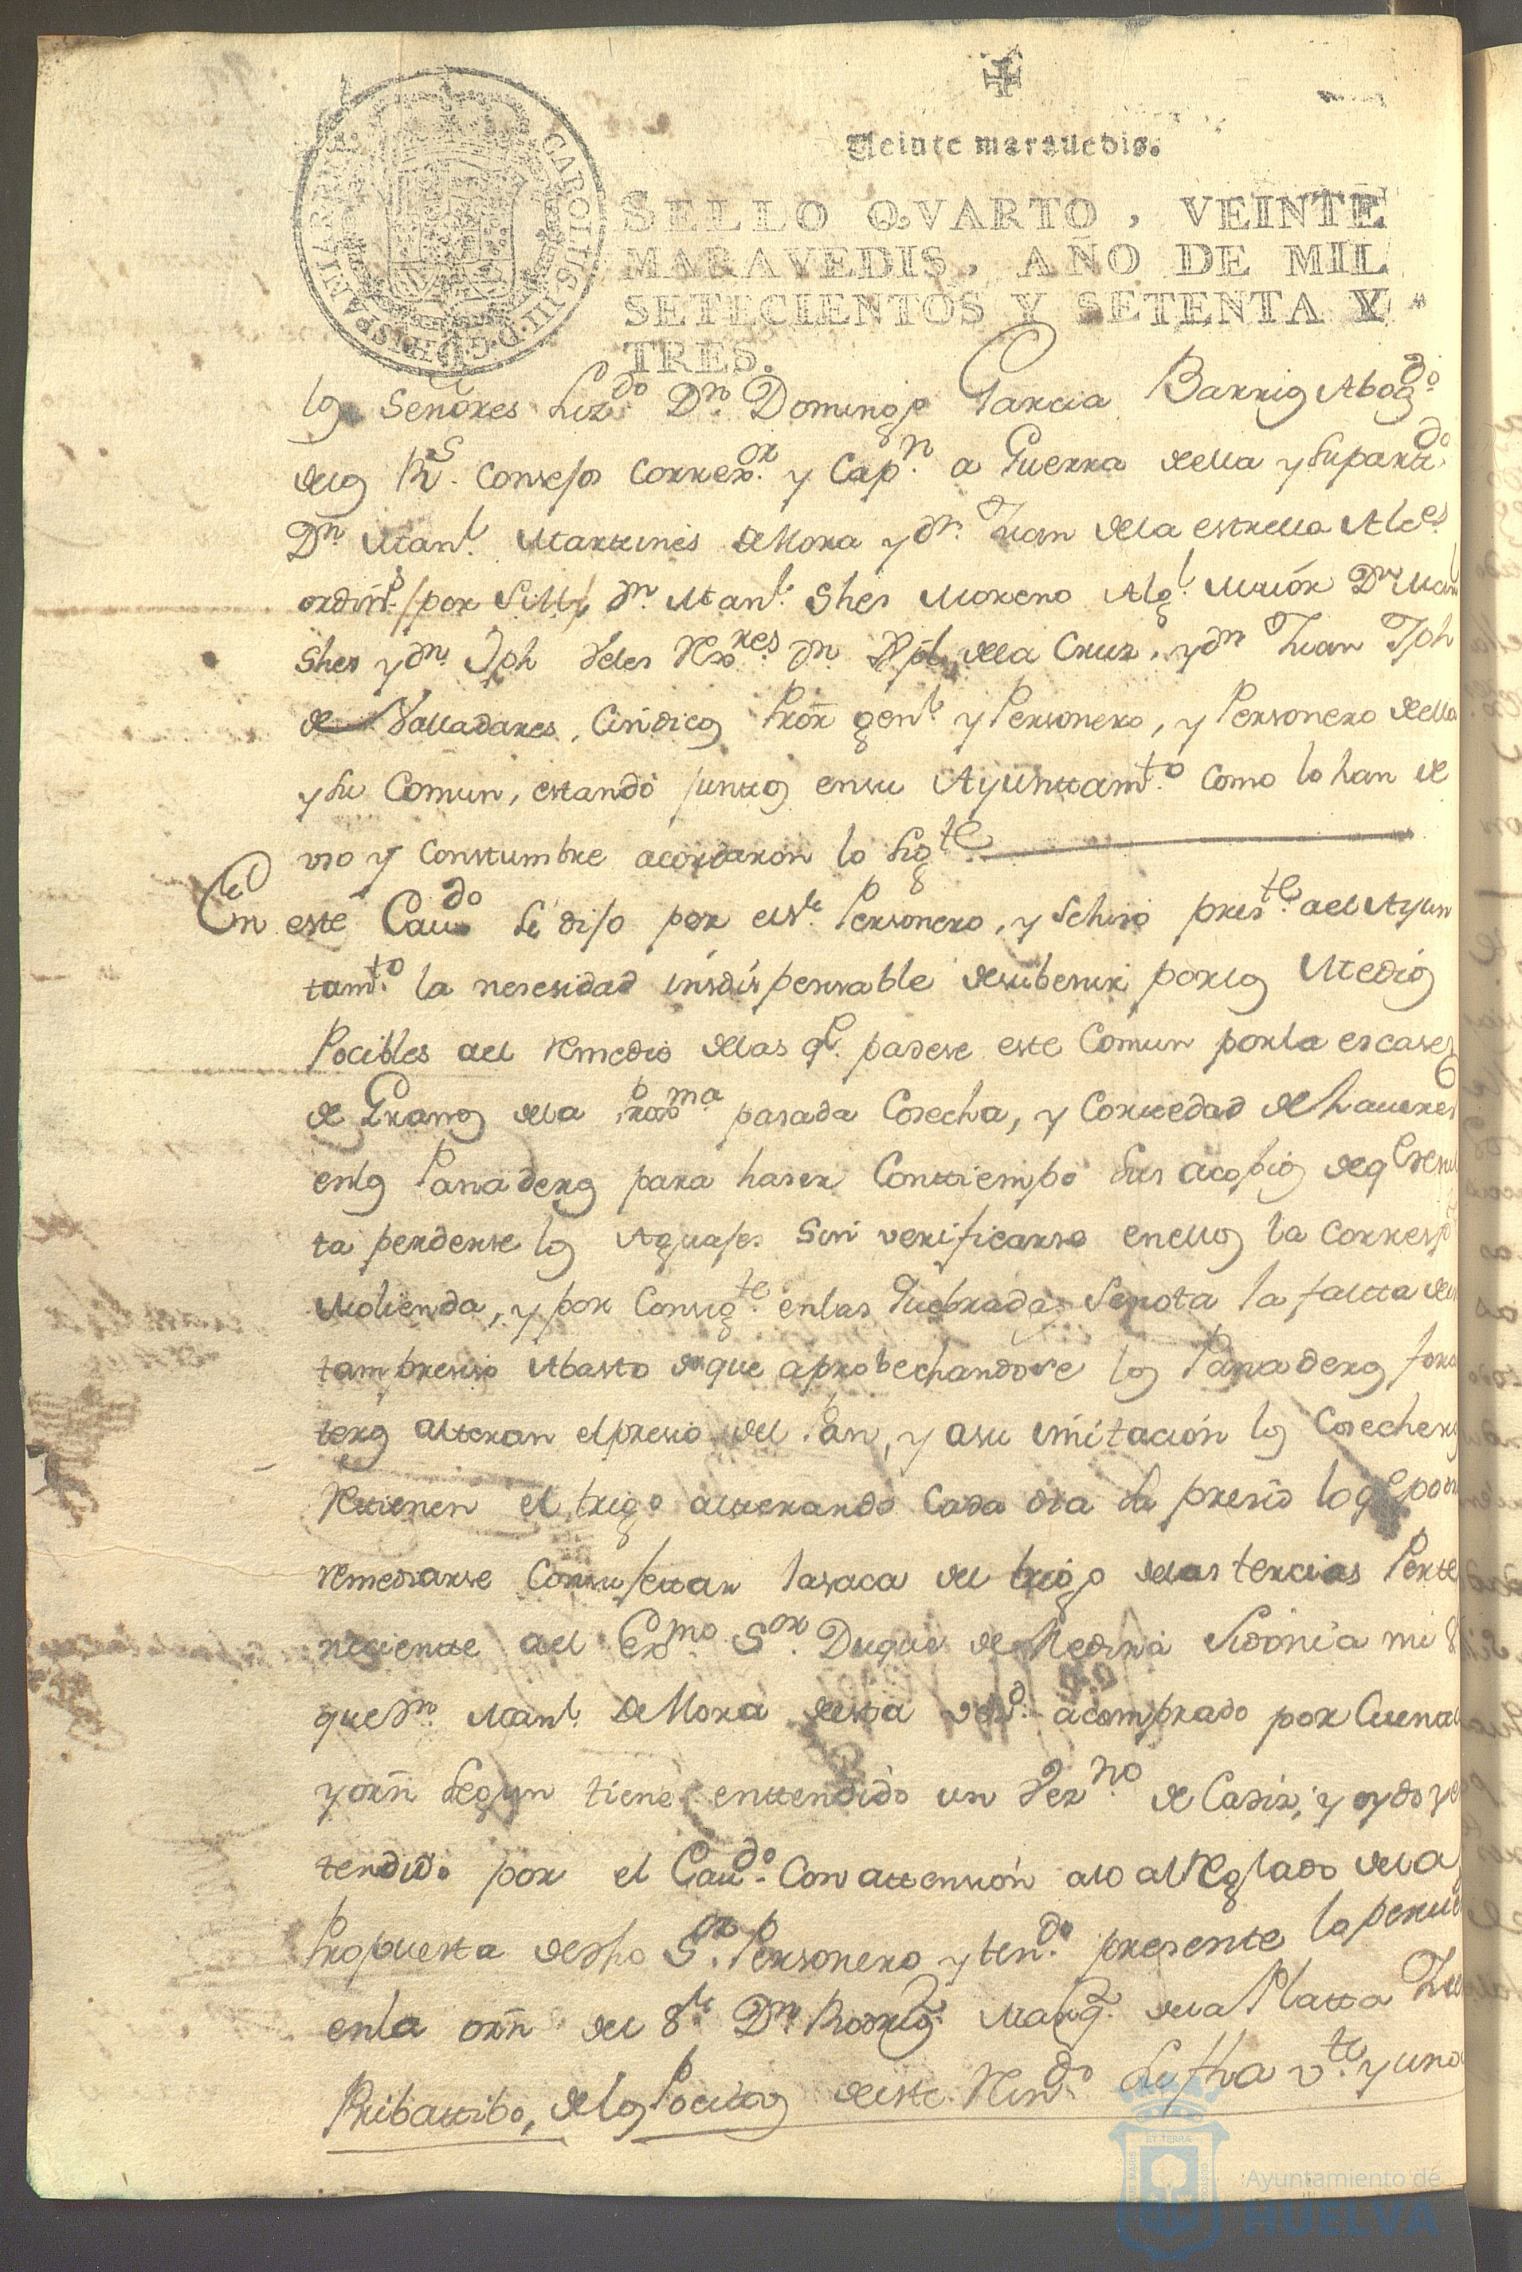 Veinte marauedis.
SELLO QVARTO, VEINTE
MARAVEDIS, AÑO DE MIL
SETECIENTOS Y SETENTA Y
TRES.
CAROLUS III D G HISPANIAR REX
los Señores Lizdo Dn Domingo Garcia Barrios Abogdo
delos Rs. Consejos Correxor y Capn. a Guerra della y su partdo
Dn Manl. Martines de Mora y dn. Juan dela estrella Alces
ordins por S. M. dn. Manl. Shes Moreno Alg. Maior Dn Man
Shes y dn. Jph Veles Rexres dn. Rl. dela Cruz, y dn Juan Jph
de Valladares, Cindicos Pror genl y Personero, y Personero della
y su Comun, estando juntos en su Ayunttamto como lo han de
uso y Constumbre acordaron lo sigte
En este Caudo se dijo por el Sr. Personero, y se hiso preste. ael Ayun
tamto la nesesidad indispensable de subbenir por los Medios
Pocibles ael remedio delas qe. padese este Comun por la escases
de Granos dela proxma pasada Cosecha, y Cortedad de haueres
en los Panaderos para haser Conttiempo sus acopios de qe resul
ta perderse los Aguajes sin verificarse en ellos la corresp
Molienda, y por Consigte. en las Quebradas se nota la faltta de
tam presiso Abasto de que aprobechandose los Panaderos fora
teros alteran el presio del Pan, y a su imitacion los Cosecheros
Rettienen el trigo altterando Cada dia su presio lo qe podra
remediarse Con sujettar la saca del trigo delas tercias Perte
neciente ael Exmo Sor Duque de Medina Sidonia mi Sr
que dn. Manl. de Mora desta vesd. a comprado por Cuenta
y orn segun tiene enttendido un Vezno de Cadiz, y oydo y en
tendido por el Caudo. Con attension a lo al Reglado dela
Propuesta de dho Sor. Personero y tendo presente lo preue
en la orn del Sr Dn. Rodrigo Marqs. dela Platta Jues
Pribattibo, delos Positos deste Reindo su fha vte. y uno
Ayuntamiento de
HUELVA